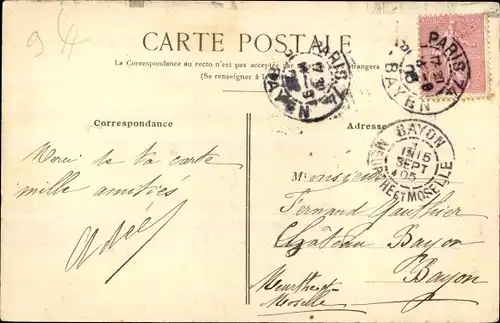 94
CARTE POSTALE
La Correspondance au recto n'est pas acceptée par étrangers
(Se renseigner à la
PARIS 14
BAYEN
PARIS 14
BAYEN
Correspondance
Adresse
BAYON
15
SEPT
05
MEURTHE ET MOSELLE
Merci de ta carte
mille amitiés
Adèle
Monsieur
Fernand Gauthier
Château Bayon
Bayon
Meurthe et
Moselle